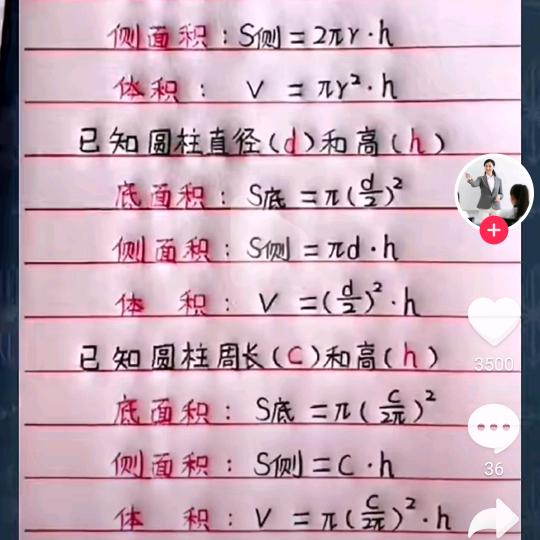 侧面积：S侧=2πr·h
体积：V=πr²·h
已知圆柱直径(d)和高(h)
底面积：S底=π(d/2)²
侧面积：S侧=πd·h
体 积：V=(d/2)²·h
已知圆柱周长(C)和高(h)
底面积：S底=π(C/2π)²
侧面积：S侧=C·h
体 积：V=π(C/2π)²·h
3500
36